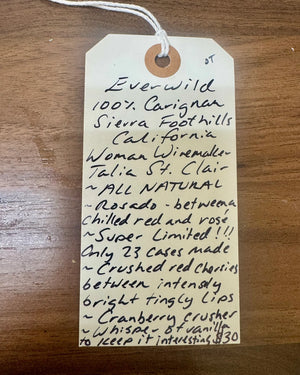 OT
Everwild
100% Carignan
Sierra Foothills
California
Woman Winemaker
Talia St. Clair
~ ALL NATURAL
~ Rosado - between a
chilled red and rosé
~ Super Limited!!!
Only 23 cases made
~ Crushed red cherries
between intensly
bright tingly lips
~ Cranberry crusher
~ Whisper of vanilla
to keep it interesting $30